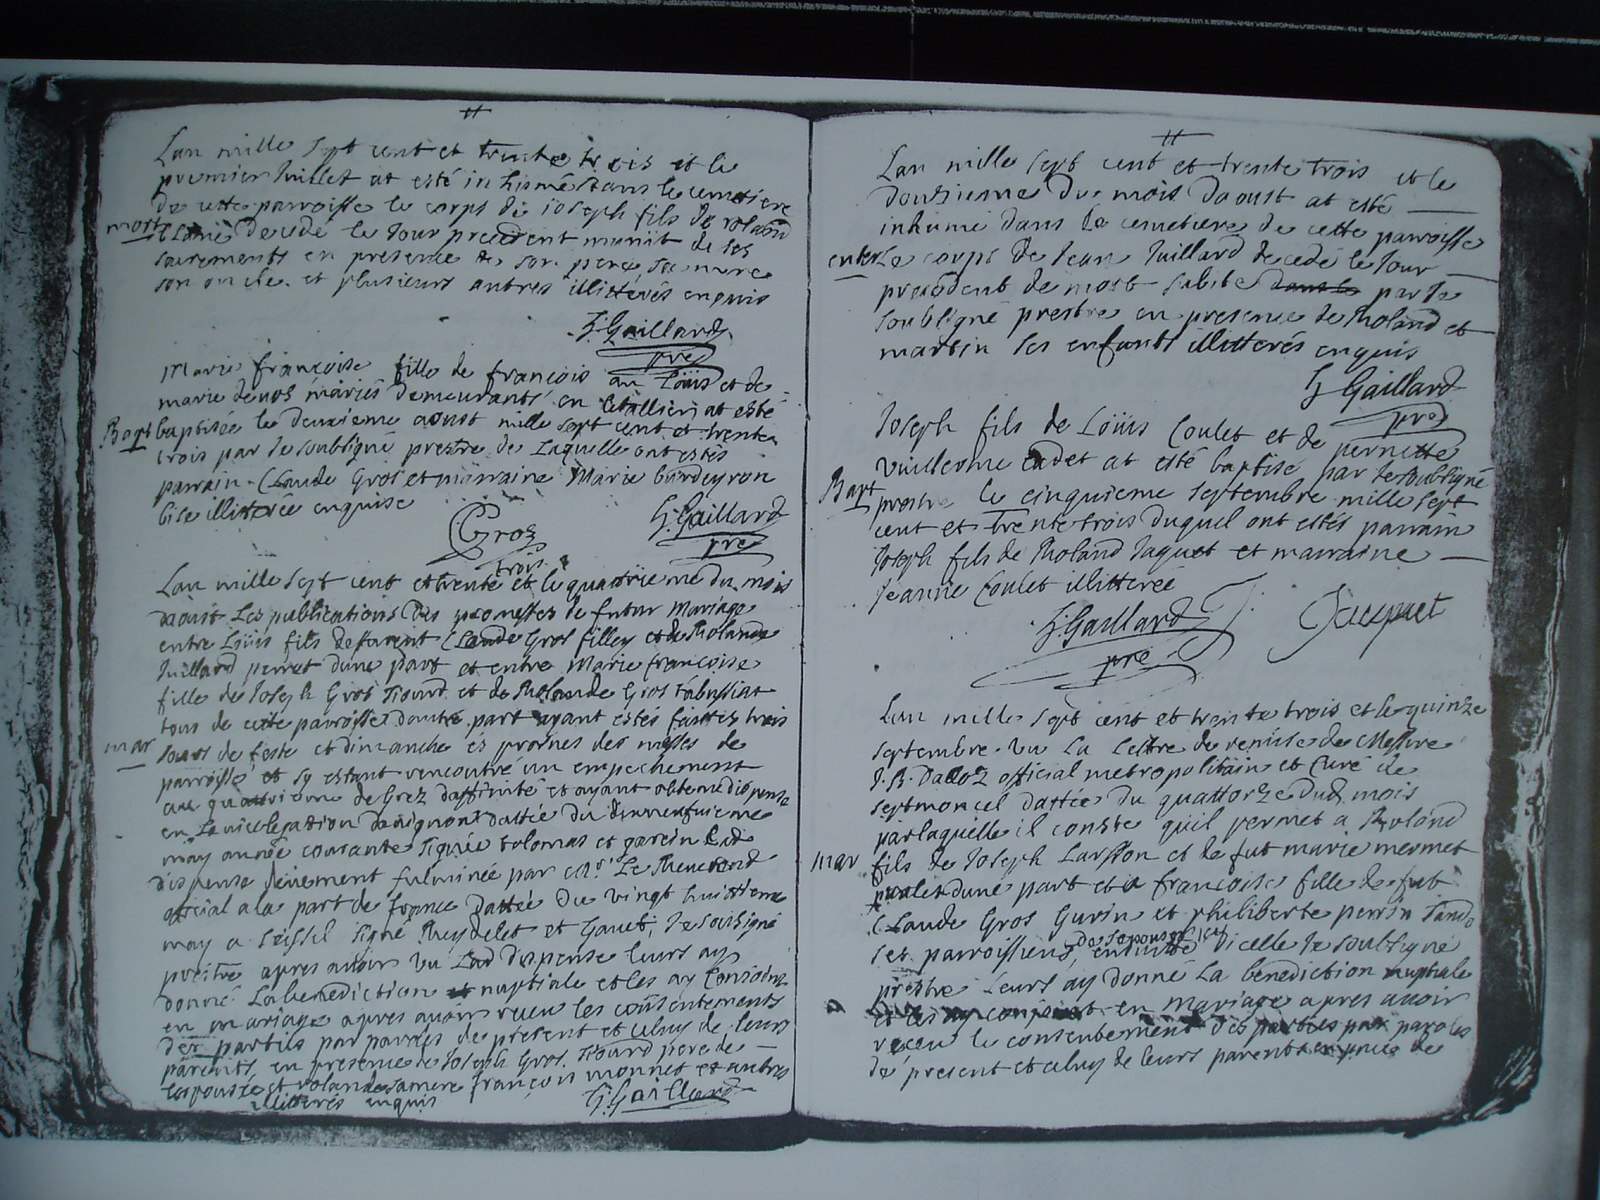 Lan mille sept cent et trente trois et le
premier Juillet at esté inhumé dans le cemetiere
de cette parroisse le corps de Joseph fils de roland
mort
decedé le Jour precedent muniit de ses
sacrements en presence de son pere sa mere
son oncle et plusieurs autres illittérés enquis
h: Gaillard
pre
Marie françoise fille de françois Louis et de
marie demeurants en at esté
Bapt baptisée le deuxieme aoust mille sept cent et trente
trois par Je soubligné prestre de Laquelle ont estés
parrain Claude Gros et marraine Marie
illiterée enquise
CGroz
h: Gaillard
pre
trois
Lan mille sept cent et trente et le quattrieme du mois
daoust Les publications des promesses de futur Mariage
entre Loüis fils defunt Claude Gros filley et de Rolande
Juillard permet dune part et entre Marie françoise
fille de Joseph Gros Tiourd et de Rolande Gros
tous de cette parroisse dautre part ayant estés faittes trois
mar
Jours de feste et dimanche és prosnes des messes de
parroisse et sy estant rencontré un empechement
au quattrieme degrez daffinité et ayant obtenu dispense
en La vicelegation davignon dattée du dixneufuieme
may année courante signée tolomas et garcin Lad
dispense düement fulminée par Mr. Le Reverend
official a la part de france Dattée du vingt huittieme
may a Seissel signé Reydelet et Gauet, Je soussigné
preitre apres avoir vu Lad dispense leurs ay
donné La benediction nuptiale et les ay Conioint
en mariage apres avoir receu les consentements
des parties par paroles de present et celuy de leurs
parents, en presence de Joseph Gros Tiourd pere de
lespouse et rolande sa mere françois monnet et autres
illitterés enquis
h: Gaillard
Lan mille sept cent et trente trois et le
douzieme du mois daoust at esté
inhumé dans le cemetiere de cette parroisse
enter
Le corps de Jean Juillard decedé le Jour
precedent de mort subite par Je
soubligné prestre en presence de Roland et
martin ses enfants illitterés enquis
h Gaillard
pre
Joseph fils de Loüis Coulet et de pernette
vuillerme cadet at esté baptisé par Je soubligné
Bapt
prestre le cinquieme septembre mille sept
cent et trente trois duquel ont estés parrain
Joseph fils de Roland Jaquet et marraine
Jeanne Coulet illitterée
h: Gaillard
pre
Jacquet
Lan mille sept cent et trente trois et le quinze
septembre vu La Lettre de remise de Messire
J. B. Dalloz official metropolitain et Curé de
septmoncel dattée du quattorze dud mois
par laquelle il conste quil permet a Roland
mar
fils de Joseph Lançon et de fut marie mermet
dune part et a françoise fille de fut
Claude Gros Gurin et philiberte perrin Tand
ses parroissiens, de sepouser icy
en suitte dicelle Je soubligné
prestre Leurs ay donné La benediction nuptiale
et les ay conjoint en mariage apres avoir
receu le consentement des parties par paroles
de present et celuy de leurs parents en pnce de